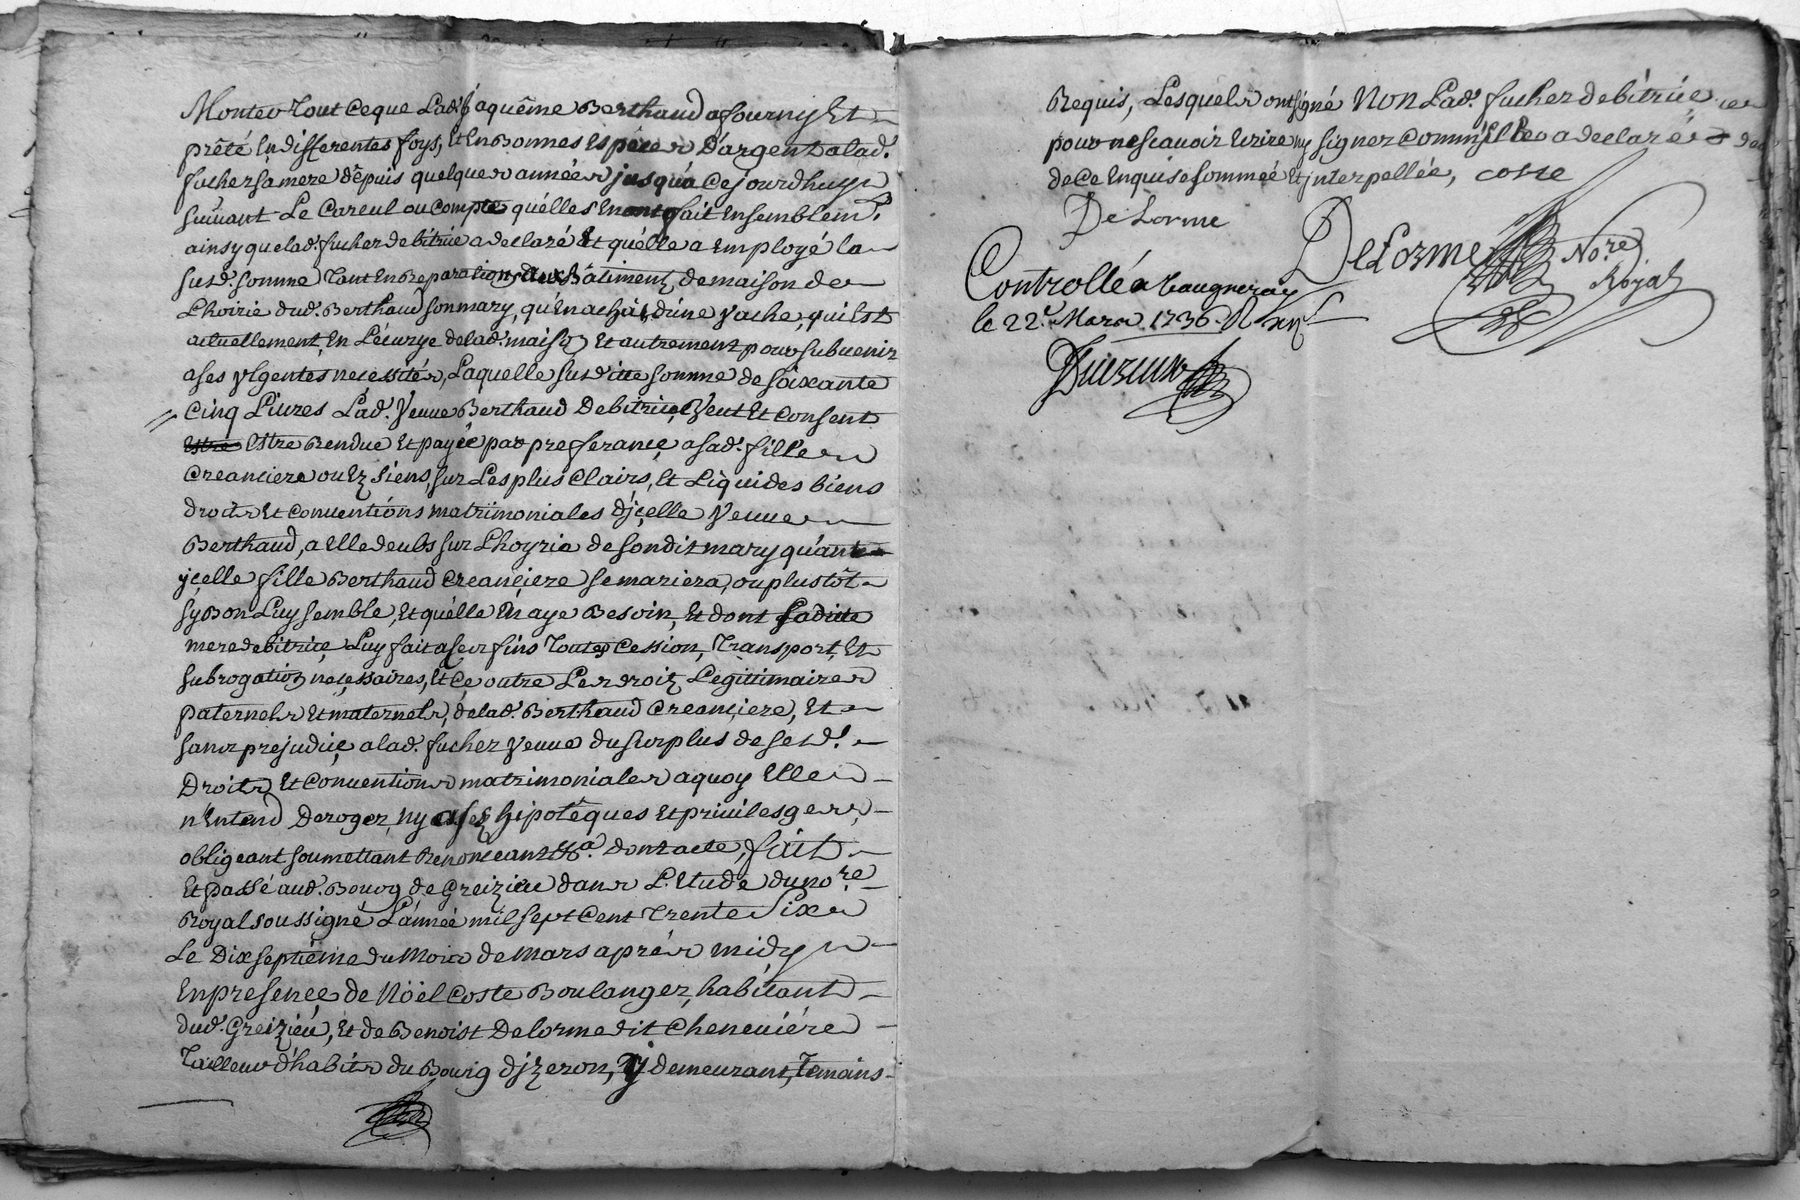 Monter tout ce que lad. jaquême Berthaud a fourny Et
prêté En differentes foys, Et En Bonnes Espèces D'argent a lad.
fucher sa mere dêpuis quelques années jusqu'a ce jourdhuy
suivant Le careul ou compte qu'elles En ont fait Ensemblem.t
ainsy que lad. fucher debitrice a declaré Et qu'elle a Employé la
susd. somme tout En Reparations des Bâtiments de maison de
Lhoirie dud. Berthaud son mary, qu'En achat d'une vache, qui Est
actuellement En L'écurye de lad. maison Et autrement pour subvenir
a ses Vrgentes necessités, Laquelle susditte somme de soixante
Cinq Livres Lad. Veuve Berthaud Debitrice, Veut Et Consent
Estre Rendue Et payée par preferance a sad. fille
Creanciere ou Ez siens, sur Les plus Clairs, Et Liquides biens
droits Et Conventions matrimoniales d'jcelle Veuve
Berthaud, a Elle deubs sur Lhoyrie de son dit mary quante
ycelle fille Berthaud Creanciere se mariera, ou plustôt
sy Bon Luy semble, Et qu'elle En aye Besoin, Et dont sa ditte
mere debitrice Luy fait a ses fins toutes Cession, Transport, Et
subrogation necessaires, Et Ce outre Les droits Legittimaires
paternels Et maternels, de lad. Berthaud Creanciere, Et
sans prejudice a lad. fucher Veuve du surplus de sesd.
Droits, Et Conventions matrimoniales a quoy Elle
n'Entend Deroger, ny a ses hipotêques Et privilesges,
obligeant soumettant Renonceant &a. dont acte, fait
Et passé aud. Bourg de Greizieu dans L'Etude du no.re
Royal soussigné L'année mil sept Cent Trente Six
Le Dix septiême du Mois de mars aprés midy
En presence de Nöel Coste Boulanger, habitant
dud. Greizieu, Et de Benoist Delorme dit Cheneviére
Tailleur d'habits du Bourg d'jzeron, y demeurant, Temoins
Requis, Lesquels ont signé Non Lad. fucher debitrice
pour ne scavoir Ecrire ny signer Comm'Elle a declaré
de Ce Enquise sommée Et jnterpellée, coste
De Lorme
DeLorme No.re
Royal
Controllé a Vaugneray
le 22e. Mars 1736. R